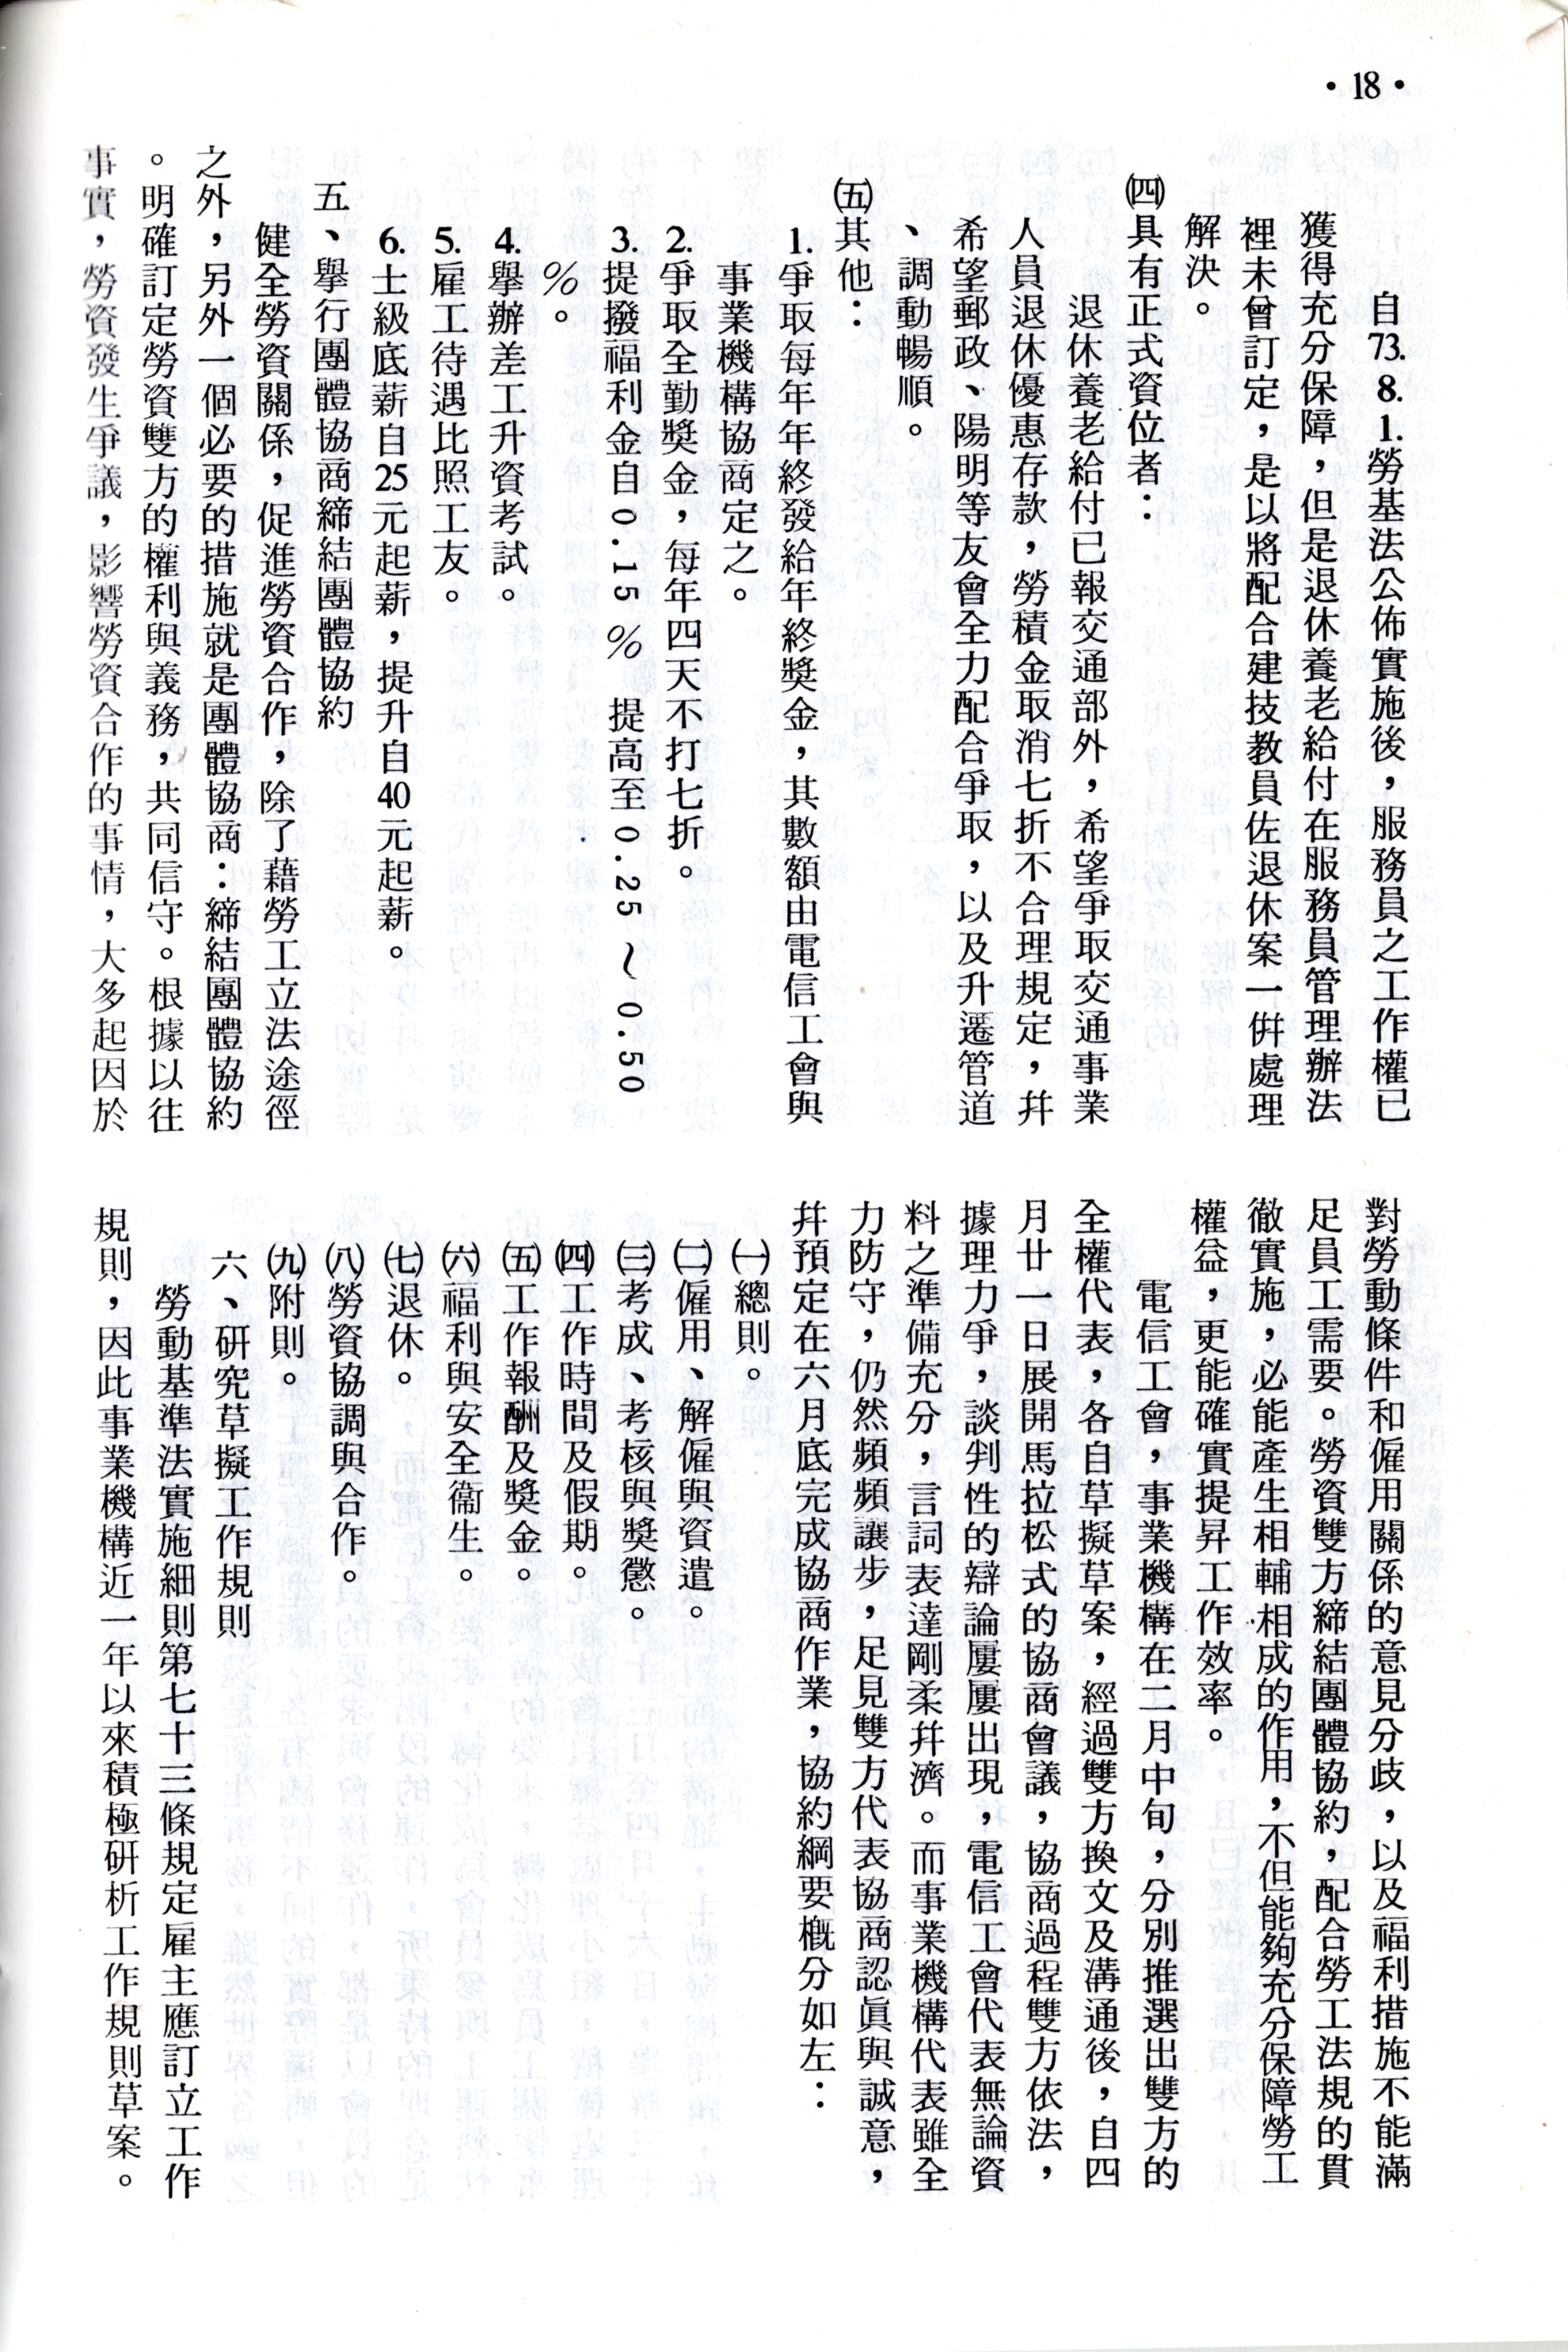 •18•
自73.8.1.勞基法公佈實施後，服務員之工作權已
獲得充分保障，但是退休養老給付在服務員管理辦法
裡未曾訂定，是以將配合建技教員佐退休案一併處理
解決。
㈣具有正式資位者：
退休養老給付已報交通部外，希望爭取交通事業
人員退休優惠存款，勞積金取消七折不合理規定，幷
希望郵政、陽明等友會全力配合爭取，以及升遷管道
、調動暢順。
㈤其他：
1.爭取每年年終發給年終獎金，其數額由電信工會與
事業機構協商定之。
2.爭取全勤獎金，每年四天不打七折。
3.提撥福利金自0.15％提高至0.25～0.50
％。
4.舉辦差工升資考試。
5.雇工待遇比照工友。
6.士級底薪自25元起薪，提升自40元起薪。
五、舉行團體協商締結團體協約
健全勞資關係，促進勞資合作，除了藉勞工立法途徑
之外，另外一個必要的措施就是團體協商：締結團體協約
。明確訂定勞資雙方的權利與義務，共同信守。根據以往
事實，勞資發生爭議，影響勞資合作的事情，大多起因於
對勞動條件和僱用關係的意見分歧，以及福利措施不能滿
足員工需要。勞資雙方締結團體協約，配合勞工法規的貫
徹實施，必能產生相輔相成的作用，不但能夠充分保障勞工
權益，更能確實提昇工作效率。
電信工會，事業機構在二月中旬，分別推選出雙方的
全權代表，各自草擬草案，經過雙方換文及溝通後，自四
月廿一日展開馬拉松式的協商會議，協商過程雙方依法，
據理力爭，談判性的辯論屢屢出現，電信工會代表無論資
料之準備充分，言詞表達剛柔幷濟。而事業機構代表雖全
力防守，仍然頻頻讓步，足見雙方代表協商認眞與誠意，
幷預定在六月底完成協商作業，協約綱要概分如左：
㈠總則。
㈡僱用、解僱與資遣。
㈢考成、考核與獎懲。
㈣工作時間及假期。
㈤工作報酬及獎金。
㈥福利與安全衞生。
㈦退休。
㈧勞資協調與合作。
㈨附則。
六、研究草擬工作規則
勞動基準法實施細則第七十三條規定雇主應訂立工作
規則，因此事業機構近一年以來積極研析工作規則草案。